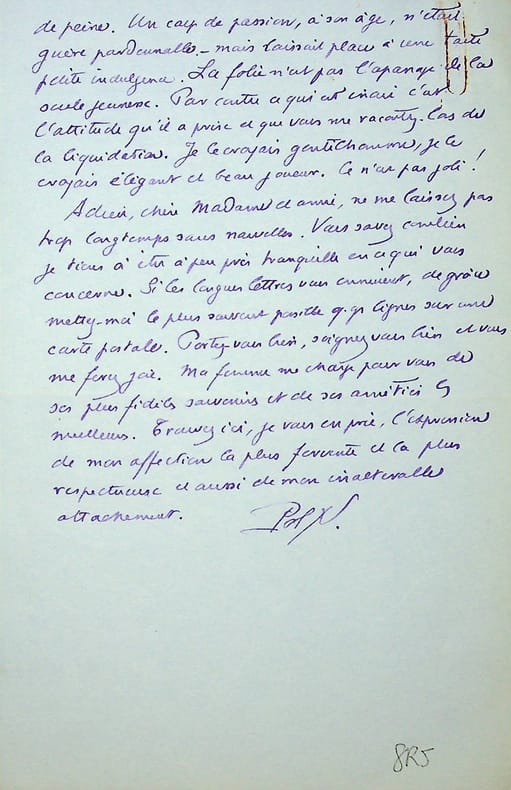 de peine. Un coup de passion, à son âge, n'était
guère pardonnable – mais laissait place à une toute
petite indulgence. La folie n'est pas l'apanage de la
seule jeunesse. Par contre ce qui est inouï c'est
l'attitude qu'il a prise et que vous me racontez lors de
la liquidation. Je le croyais gentilhomme, je le
croyais élégant et beau joueur. Ce n'est pas joli !
Adieu, chère Madame et amie, ne me laissez pas
trop longtemps sans nouvelles. Vous savez combien
je tiens à être à peu près tranquille en ce qui vous
concerne. Si les longues lettres vous ennuient, de grâce
mettez-moi le plus souvent possible q.q. lignes sur une
carte postale. Portez-vous bien, soignez vous bien et vous
me ferez joie. Ma femme me charge pour vous de
ses plus fidèles souvenirs et de ses amitiés les
meilleures. Trouvez ici, je vous en prie, l'expression
de mon affection la plus fervente et la plus
respectueuse et aussi de mon inaltérable
attachement.
Pol N.
8R5